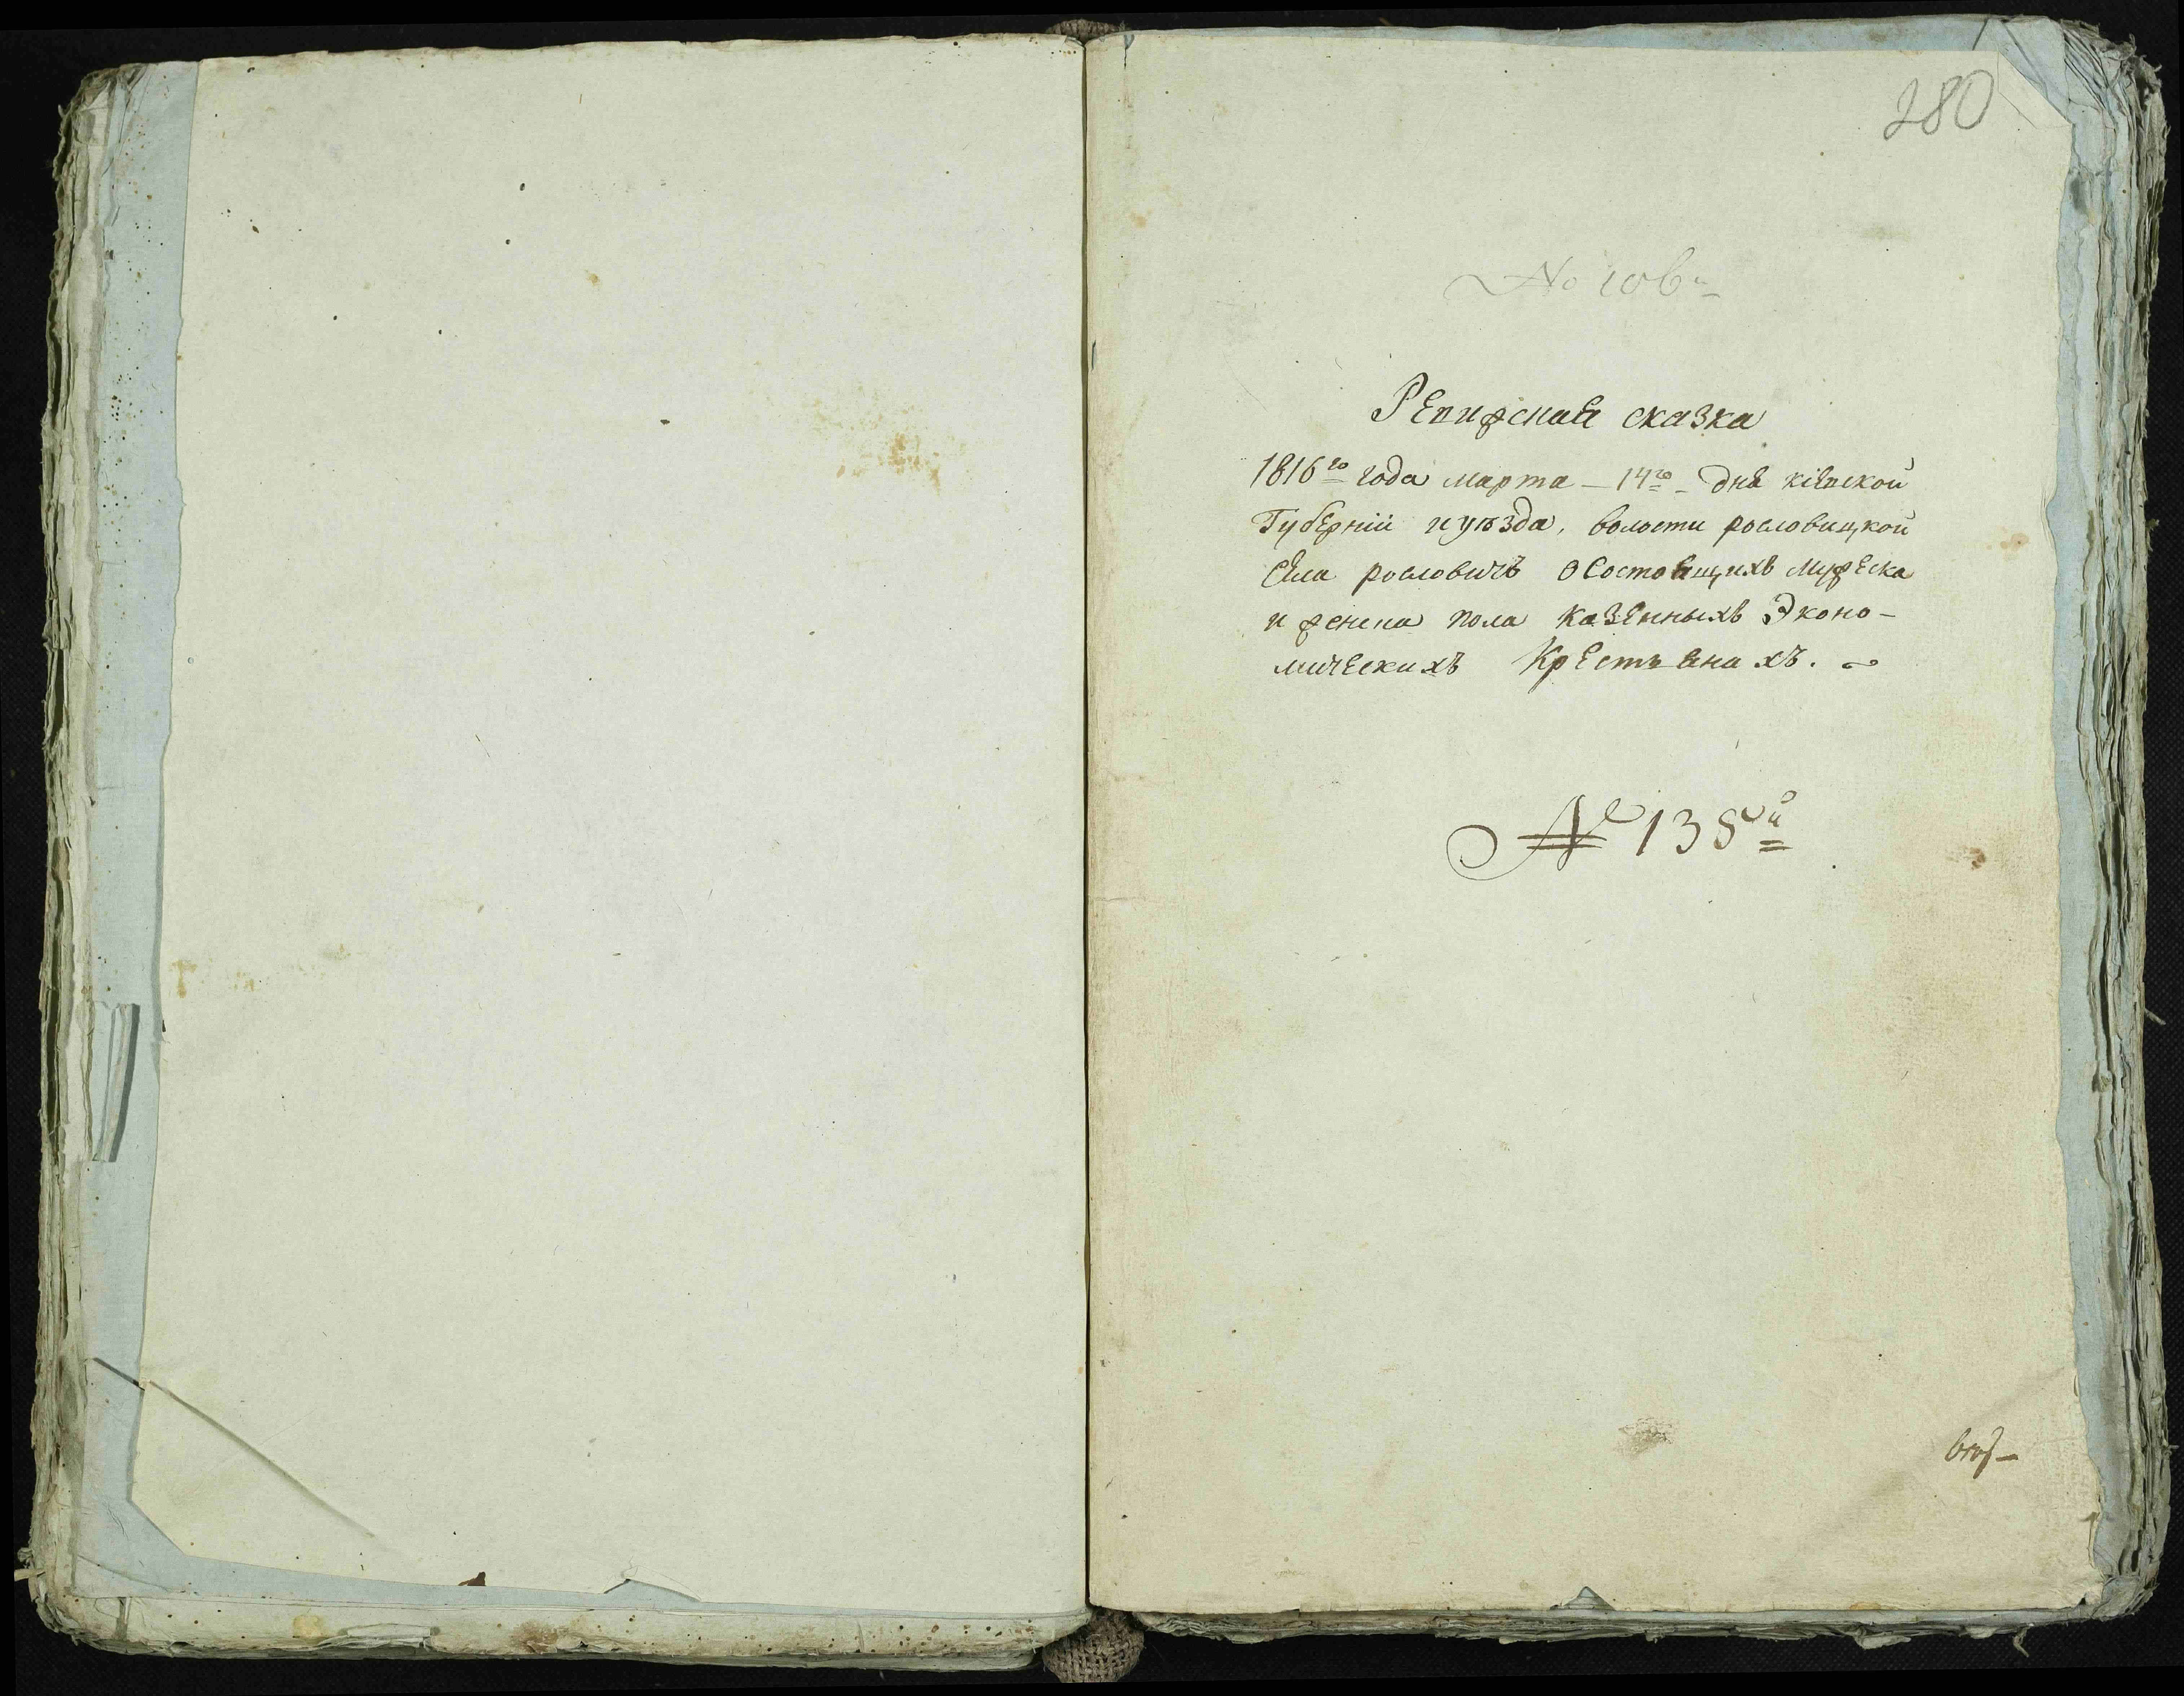 280
Ревижская сказка
1816го года марта – 14го – дня кіевской
Губерніи и уѣзда, волости рословицкой
села рословичъ о состоящихъ мужеска
и женска пола казенныхъ Эконо-
мическихъ Крестьянахъ.
№ 138й